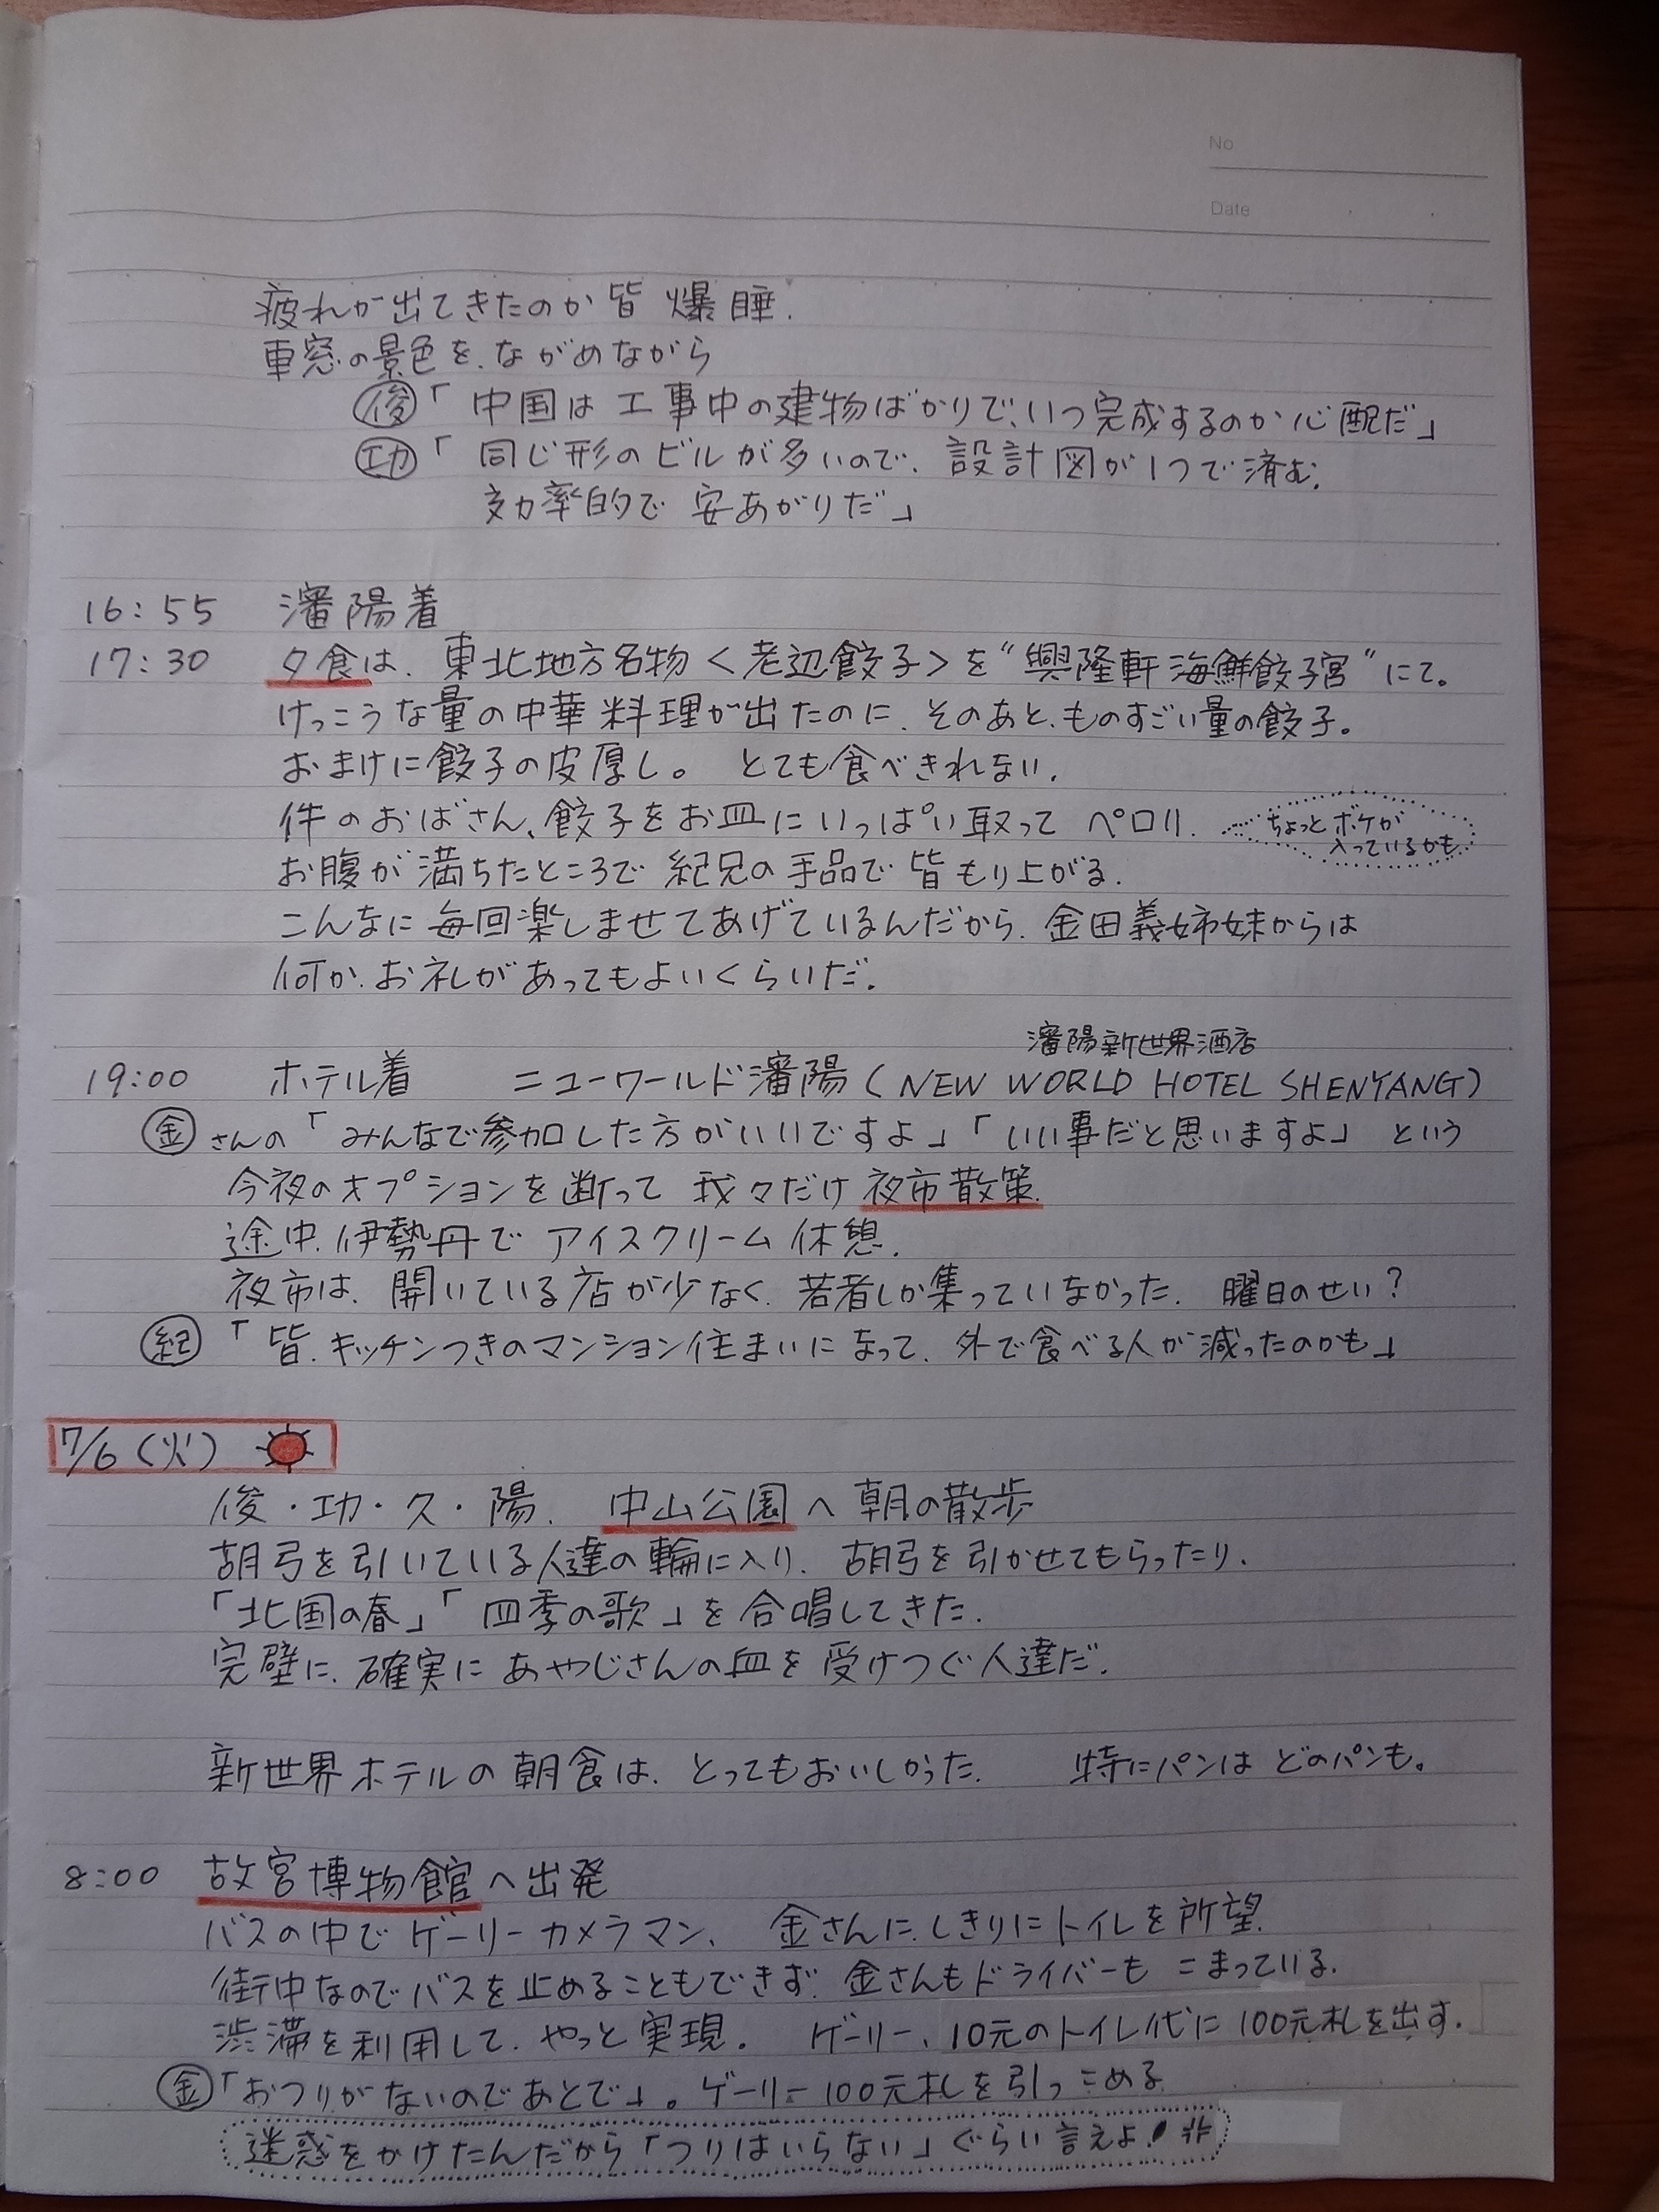 No
Date
疲れが出てきたのか皆 爆睡.
車窓の景色を、ながめながら
俊「中国は工事中の建物ばかりで、いつ完成するのか心配だ」
功「同じ形のビルが多いので、設計図が1つで済む.
効率的で 安あがりだ」
16:55 瀋陽着
17:30 夕食は、東北地方名物<老辺餃子>を“興隆軒海鮮餃子宮”にて。
けっこうな量の中華料理が出たのに、そのあと、ものすごい量の餃子。
おまけに餃子の皮厚し。 とても食べきれない.
件のおばさん、餃子をお皿にいっぱい取って ペロリ.
ちょっとボケが
入っているかも
お腹が満ちたところで 紀兄の手品で 皆もり上がる.
こんなに 毎回楽しませてあげているんだから、金田義姉妹からは
何か、お礼があってもよいくらいだ.
瀋陽新世界酒店
19:00 ホテル着 ニューワールド瀋陽(NEW WORLD HOTEL SHENYANG)
金さんの「みんなで参加した方がいいですよ」「いい事だと思いますよ」という
今夜のオプションを断って 我々だけ夜市散策.
途中、伊勢丹で アイスクリーム休憩.
夜市は、開いている店が少なく、若者しか集っていなかった. 曜日のせい?
紀「皆、キッチンつきのマンション住まいになって、外で食べる人が減ったのかも」
7/6(火)
俊・功・久・陽、中山公園へ朝の散歩
胡弓を引いている人達の輪に入り、胡弓を引かせてもらったり、
「北国の春」「四季の歌」を合唱してきた.
完璧に、確実に あやじさんの血を受けつぐ人達だ.
新世界ホテルの朝食は、とってもおいしかった. 特にパンは どのパンも。
8:00 故宮博物館へ出発
バスの中でゲーリーカメラマン、金さんに、しきりにトイレを所望.
街中なのでバスを止めることもできず、金さんもドライバーもこまっている.
渋滞を利用して、やっと実現. ゲーリー、10元のトイレ代に100元札を出す.
金「おつりがないのであとで」。ゲーリー100元札を引っこめる
迷惑をかけたんだから「つりはいらない」ぐらい言えよ!